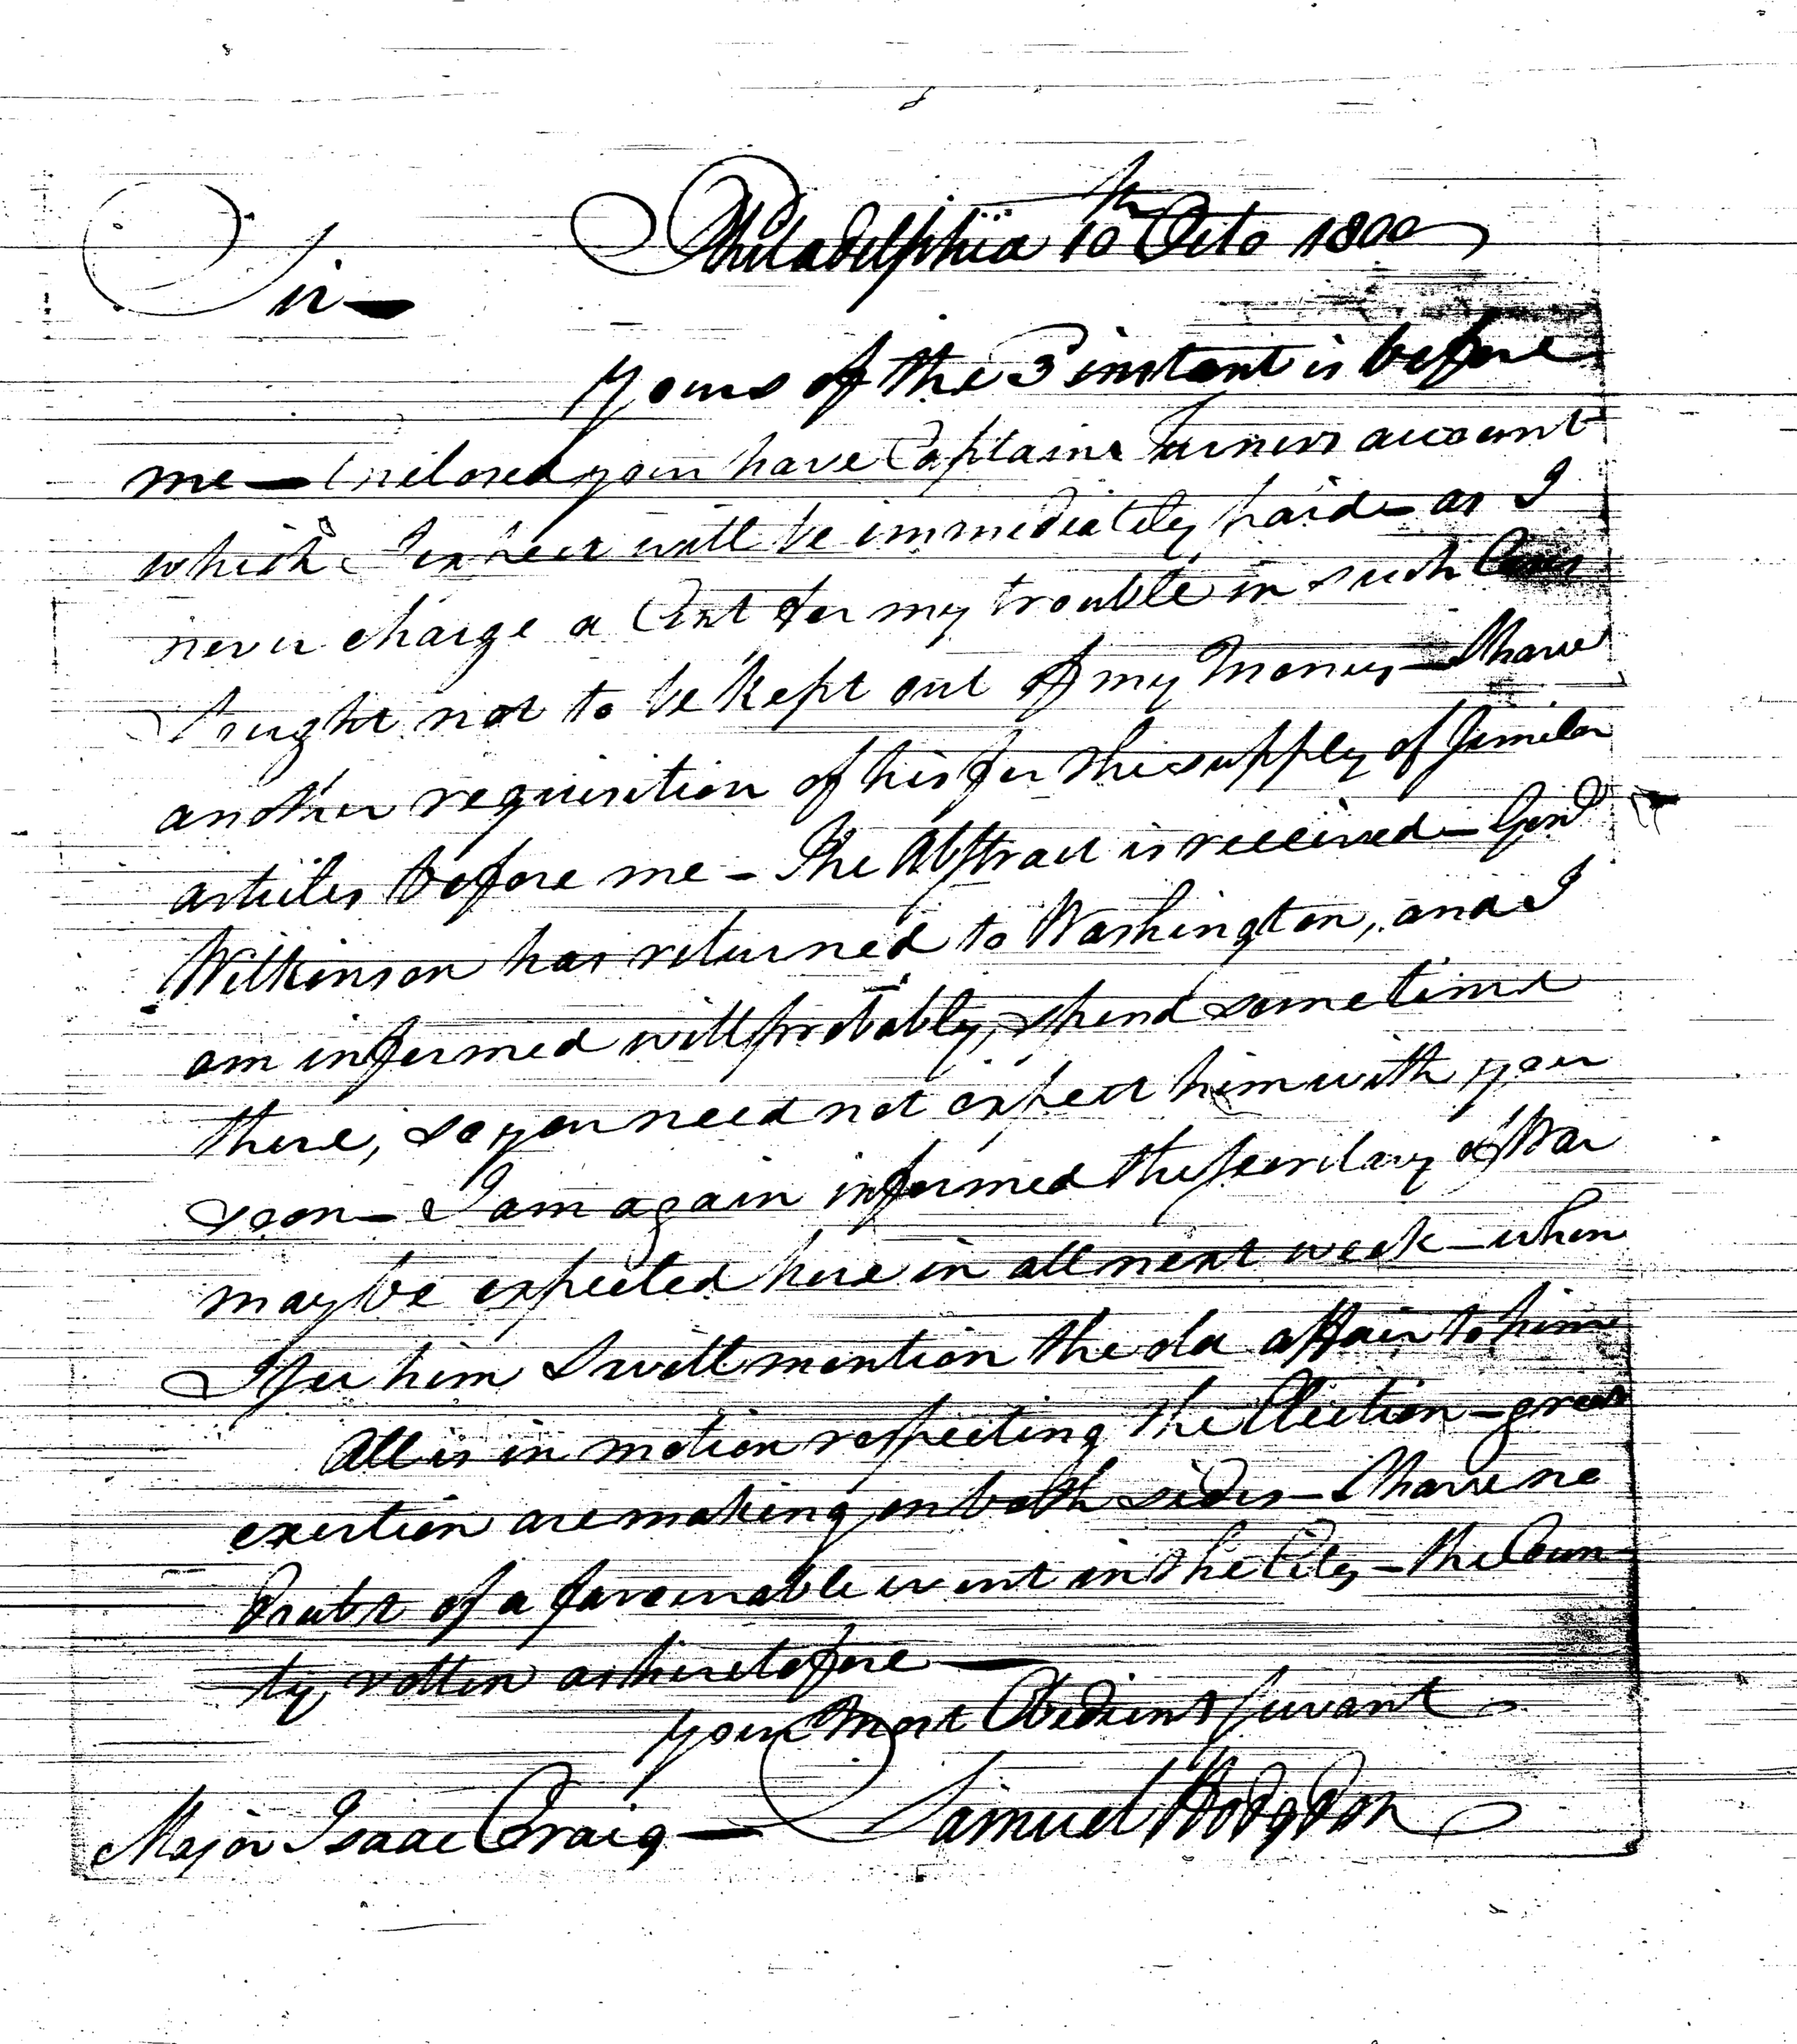 Philadelphia 10th Octo 1800
Sir—
Yours of the 3 instant is before
me — Enclosed you have Captains Turners account
which I expect will be immediately paid — as I
never charge a Cent for my trouble in such Cases
I ought not to be kept out of my money — I have
another requisition of his for the supply of similar
articles before me — The Abstract is received — Genl
Wilkinson has returned to Washington, and I
am informed will probably spend sometime
there, so you need not expect him with you
soon — I am again informed the Secretary of War
may be expected here in all next week — when
I see him I will mention the old affair to him
All is in motion respecting the Election — great
exertion are making on both sides — I have no
doubt of a favourable event in the City — the Coun-
ty rotten as heretofore —
your most Obedient Servant
Samuel Hodgdon
Major Isaac Craig —